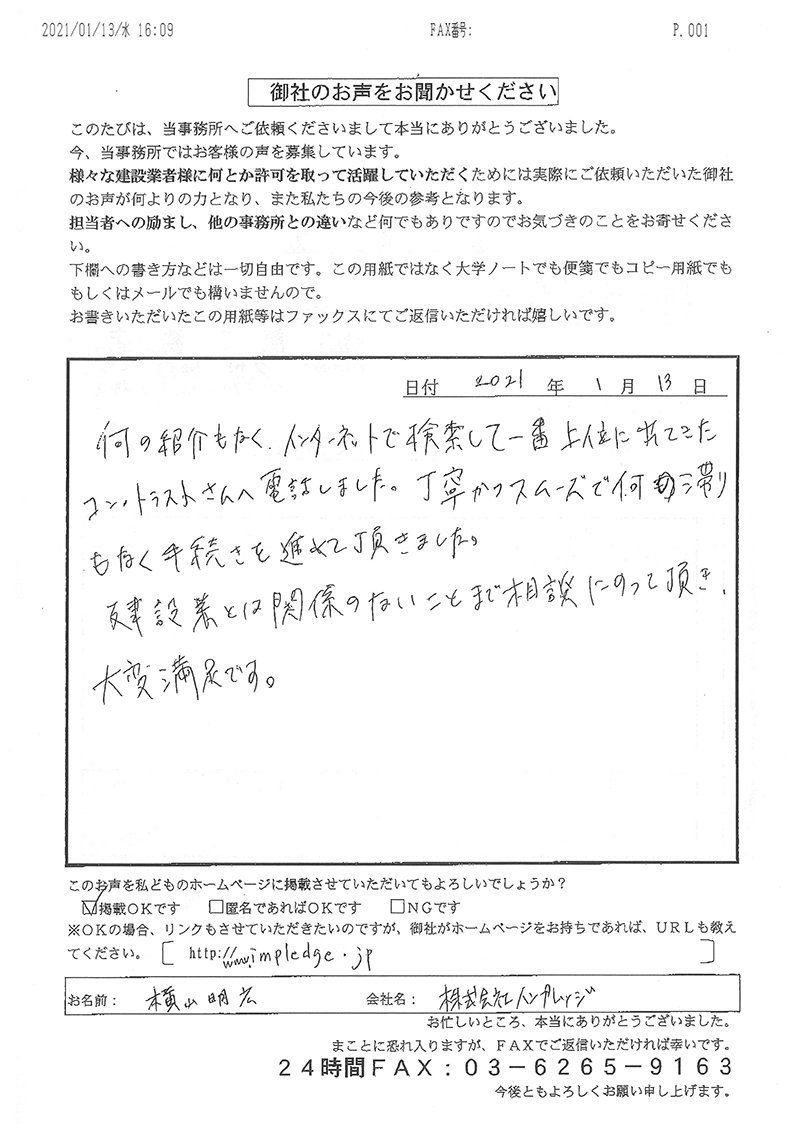 2021/01/13/水 16:09 FAX番号: P.001
御社のお声をお聞かせください
このたびは、当事務所へご依頼くださいまして本当にありがとうございました。
今、当事務所ではお客様の声を募集しています。
様々な建設業者様に何とか許可を取って活躍していただくためには実際にご依頼いただいた御社
のお声が何よりの力となり、また私たちの今後の参考となります。
担当者への励まし、他の事務所との違いなど何でもありですのでお気づきのことをお寄せくださ
い。
下欄への書き方などは一切自由です。この用紙ではなく大学ノートでも便箋でもコピー用紙でも
もしくはメールでも構いませんので。
お書きいただいたこの用紙等はファックスにてご返信いただければ嬉しいです。
日付 2021 年 1 月 13 日
何の紹介もなく、インターネットで検索して一番上位に出てきた
コントラストさんへ電話しました。丁寧かつスムーズで何の滞り
もなく手続きを進めて頂きました。
建設業とは関係のないことまで相談にのって頂き、
大変満足です。
このお声を私どものホームページに掲載させていただいてもよろしいでしょうか?
☑掲載OKです □匿名であればOKです □NGです
※OKの場合、リンクもさせていただきたいのですが、御社がホームページをお持ちであれば、URLも教え
てください。[ http://www.impledge.jp ]
お名前: 横山明広 会社名: 株式会社インプレッジ
お忙しいところ、本当にありがとうございました。
まことに恐れ入りますが、FAXでご返信いただければ幸いです。
24時間FAX:03-6265-9163
今後ともよろしくお願い申し上げます。